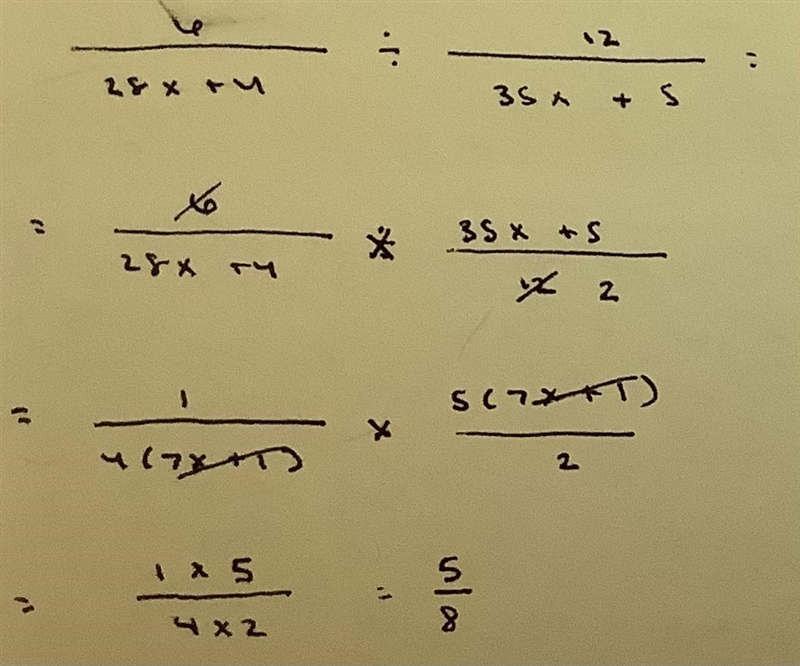 6/(28x + 4) ÷ 12/(35x + 5) =
= 6/(28x + 4) × (35x + 5)/(12 2)
= 1/(4(7x+1)) × 5(7x+1)/2
= (1 x 5)/(4 x 2) = 5/8